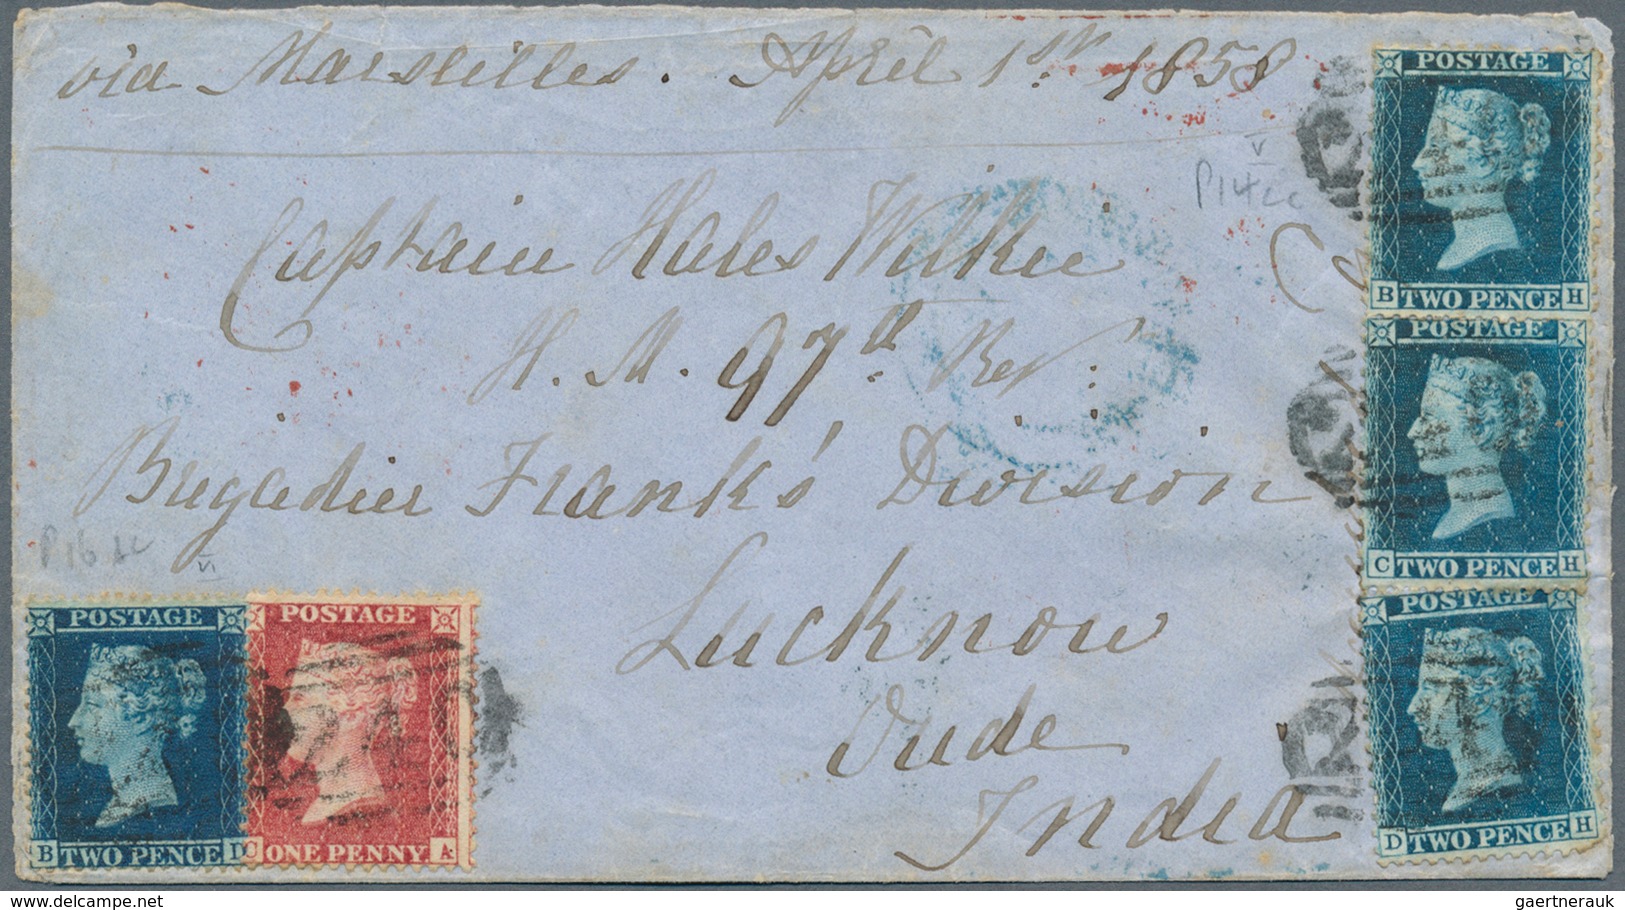 via Marseilles. April 1st. 1858
P14 cc
V
Captain Hales Wilkie
H. M. 97th. Regt:
Brigadier Frank's Division
Lucknow
Oude
India
P16 LC
VI
POSTAGE
B TWO PENCE H
POSTAGE
C TWO PENCE H
POSTAGE
D TWO PENCE H
POSTAGE
B TWO PENCE
POSTAGE
C ONE PENNY A
24
gaertnerauk